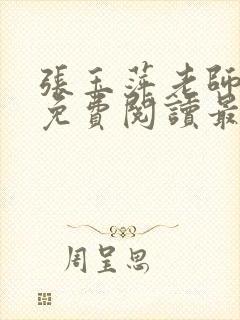 張玉萍老師
免費閱讀最
周呈思